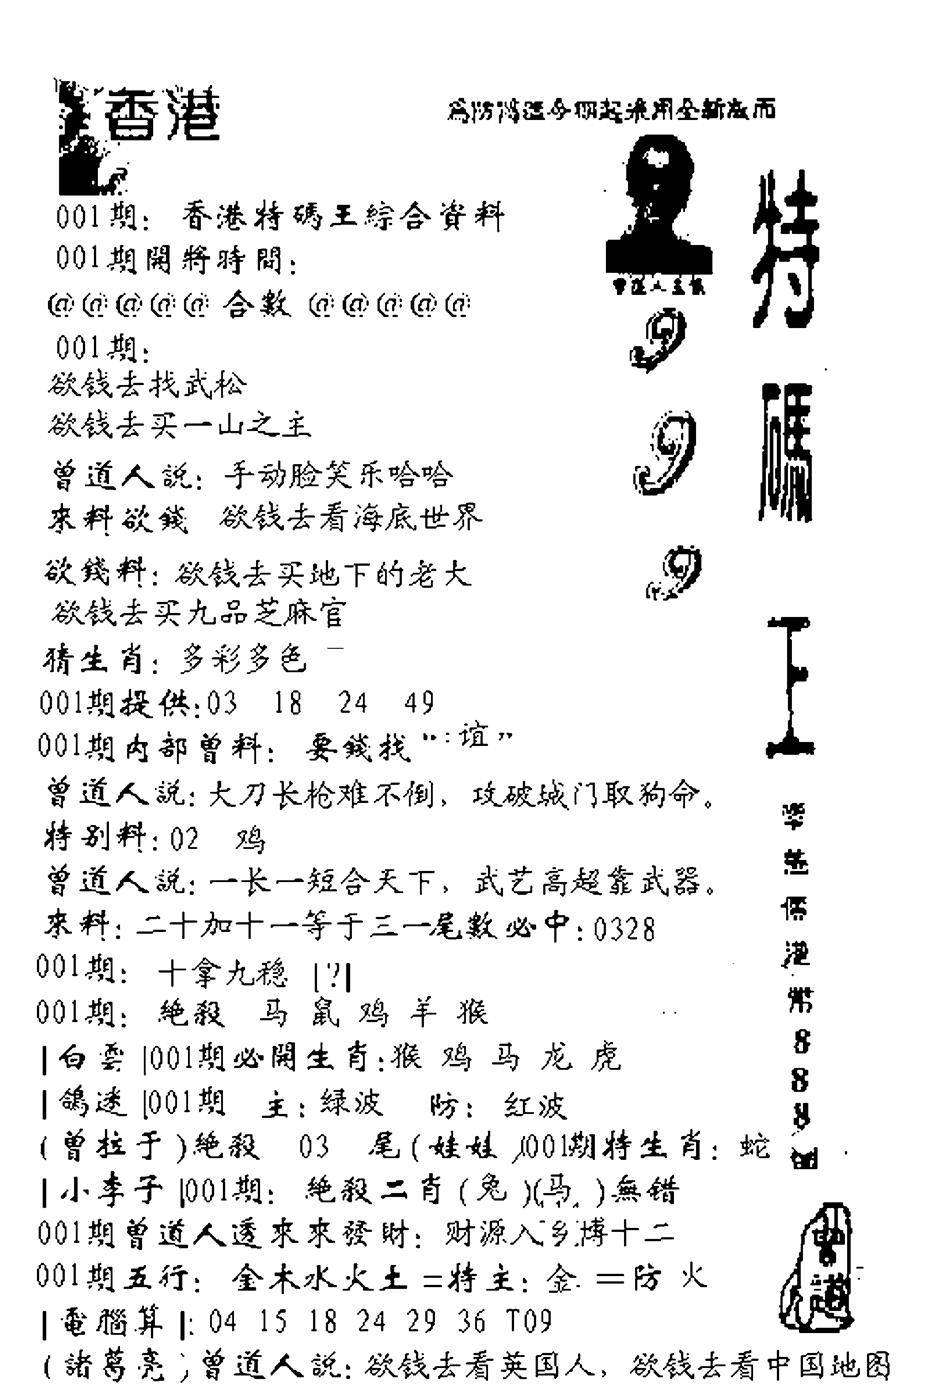 香港
001期：香港特碼王綜合資料
001期開將時間：
@@@@@ 合數 @@@@@
001期：
欲钱去找武松
欲钱去买一山之主
曾道人説：手动脸笑乐哈哈
來料欲錢 欲钱去看海底世界
欲錢料：欲钱去买地下的老大
欲钱去买九品芝麻官
猜生肖：多彩多色
001期提供:03 18 24 49
001期内部曾料：要錢找“：谊”
曾道人説：大刀长枪难不倒，攻破城门取狗命。
特别料：02 鸡
曾道人説：一长一短合天下，武艺高超靠武器。
來料：二十加十一等于三一尾數必中：0328
001期：十拿九稳 |?|
001期：絶殺 马 鼠 鸡 羊 猴
|白雲|001期必開生肖:猴 鸡 马 龙 虎
|鴿迷|001期 主：绿波 防：红波
(曾拉于)絶殺 03 尾(娃娃)001期特生肖：蛇
|小李子|001期：絶殺二肖(兔)(马)無错
001期曾道人透來來發財：财源入乡博十二
001期五行：金木水火土=特主：金=防火
|電腦算|: 04 15 18 24 29 36 T09
(諸葛亮)曾道人説：欲钱去看英国人，欲钱去看中国地图
為防 今期起採用全新版面
曾道人
999
特碼王
港幣888
曾道